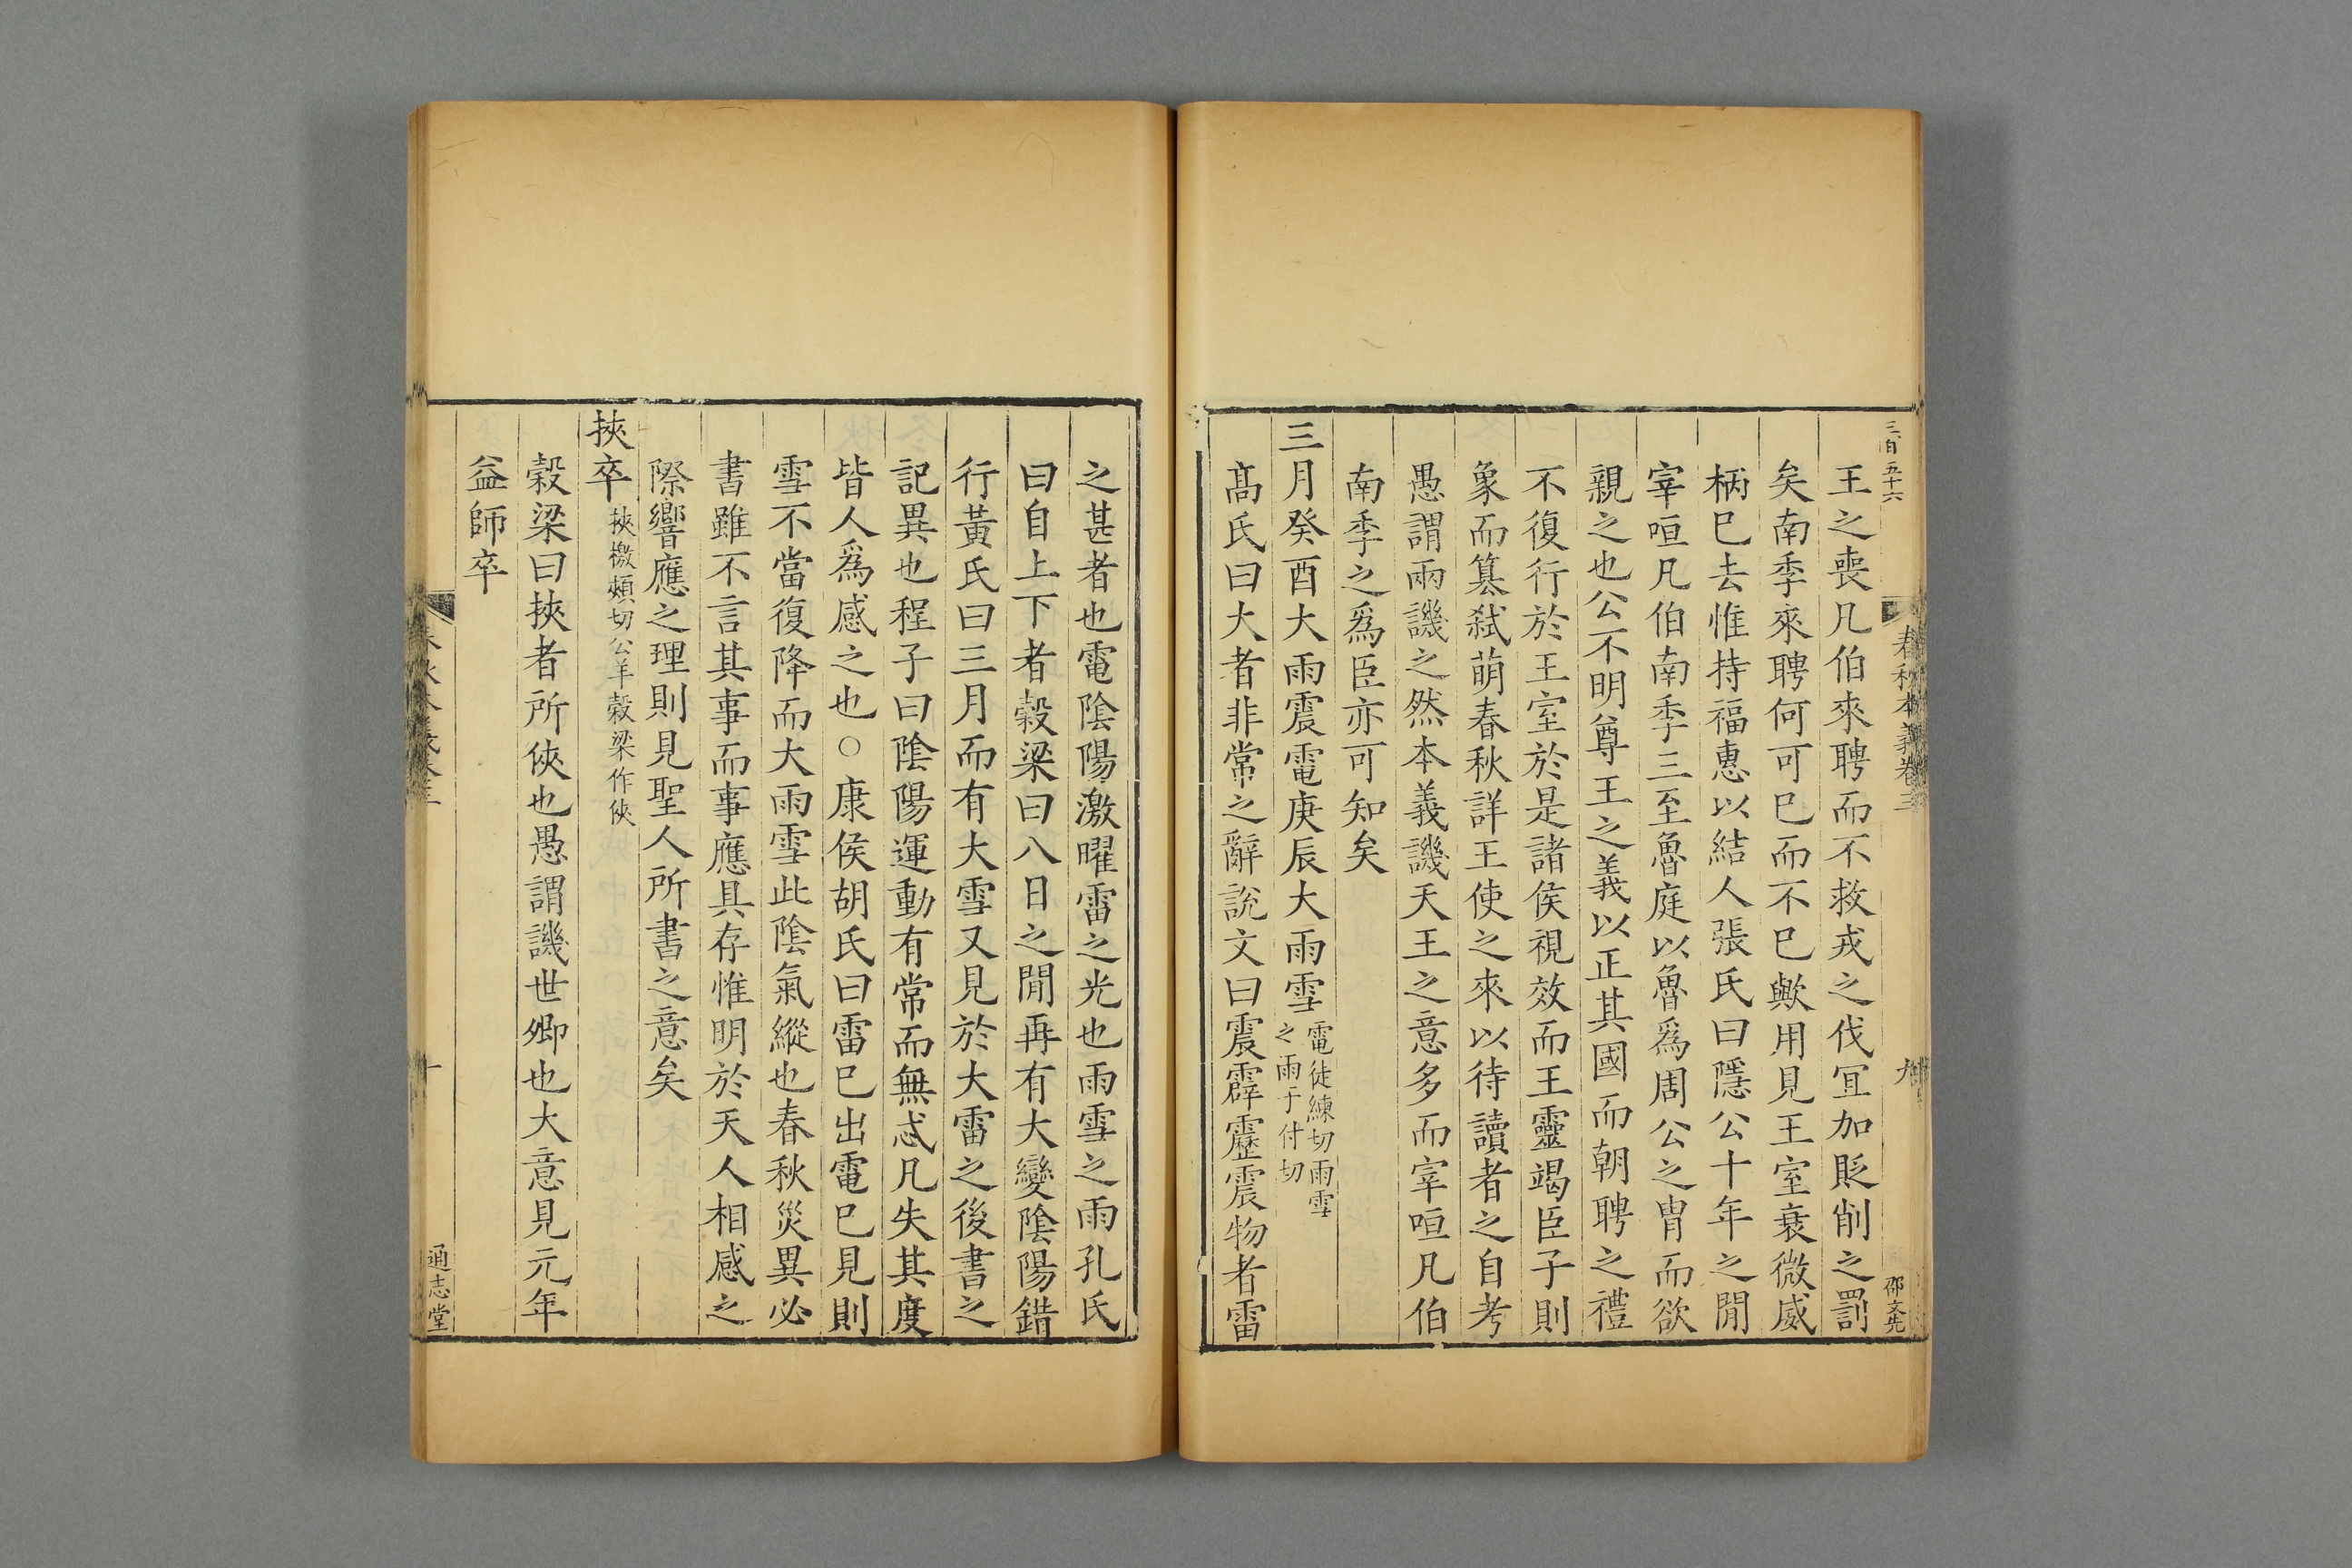 三百五十六
春秋本義卷三
九
邵文先
王之喪凡伯來聘而不救戎之伐冝加貶削之罰
矣南季來聘何可巳而不巳歟用見王室衰微威
柄巳去惟持福惠以結人張氏曰隱公十年之閒
宰咺凡伯南季三至魯庭以魯爲周公之胄而欲
親之也公不明尊王之義以正其國而朝聘之禮
不復行於王室於是諸侯視效而王靈竭臣子則
象而簒弑萌春秋詳王使之來以待讀者之自考
愚謂兩譏之然本義譏天王之意多而宰咺凡伯
南季之爲臣亦可知矣
三月癸酉大雨震電庚辰大雨雪電徒練切雨雪
之雨于付切
髙氏曰大者非常之辭說文曰震霹靂震物者雷
之甚者也電陰陽激曜雷之光也雨雪之雨孔氏
曰自上下者穀梁曰八日之閒再有大變陰陽錯
行黃氏曰三月而有大雪又見於大雷之後書之
記異也程子曰陰陽運動有常而無忒凡失其度
皆人爲感之也○康侯胡氏曰雷巳出電巳見則
雪不當復降而大雨雪此陰氣縱也春秋災異必
書雖不言其事而事應具存惟明於天人相感之
際響應之理則見聖人所書之意矣
挾卒挾檄頰切公羊穀梁作俠
穀梁曰挾者所俠也愚謂譏世卿也大意見元年
益師卒
十
通志堂